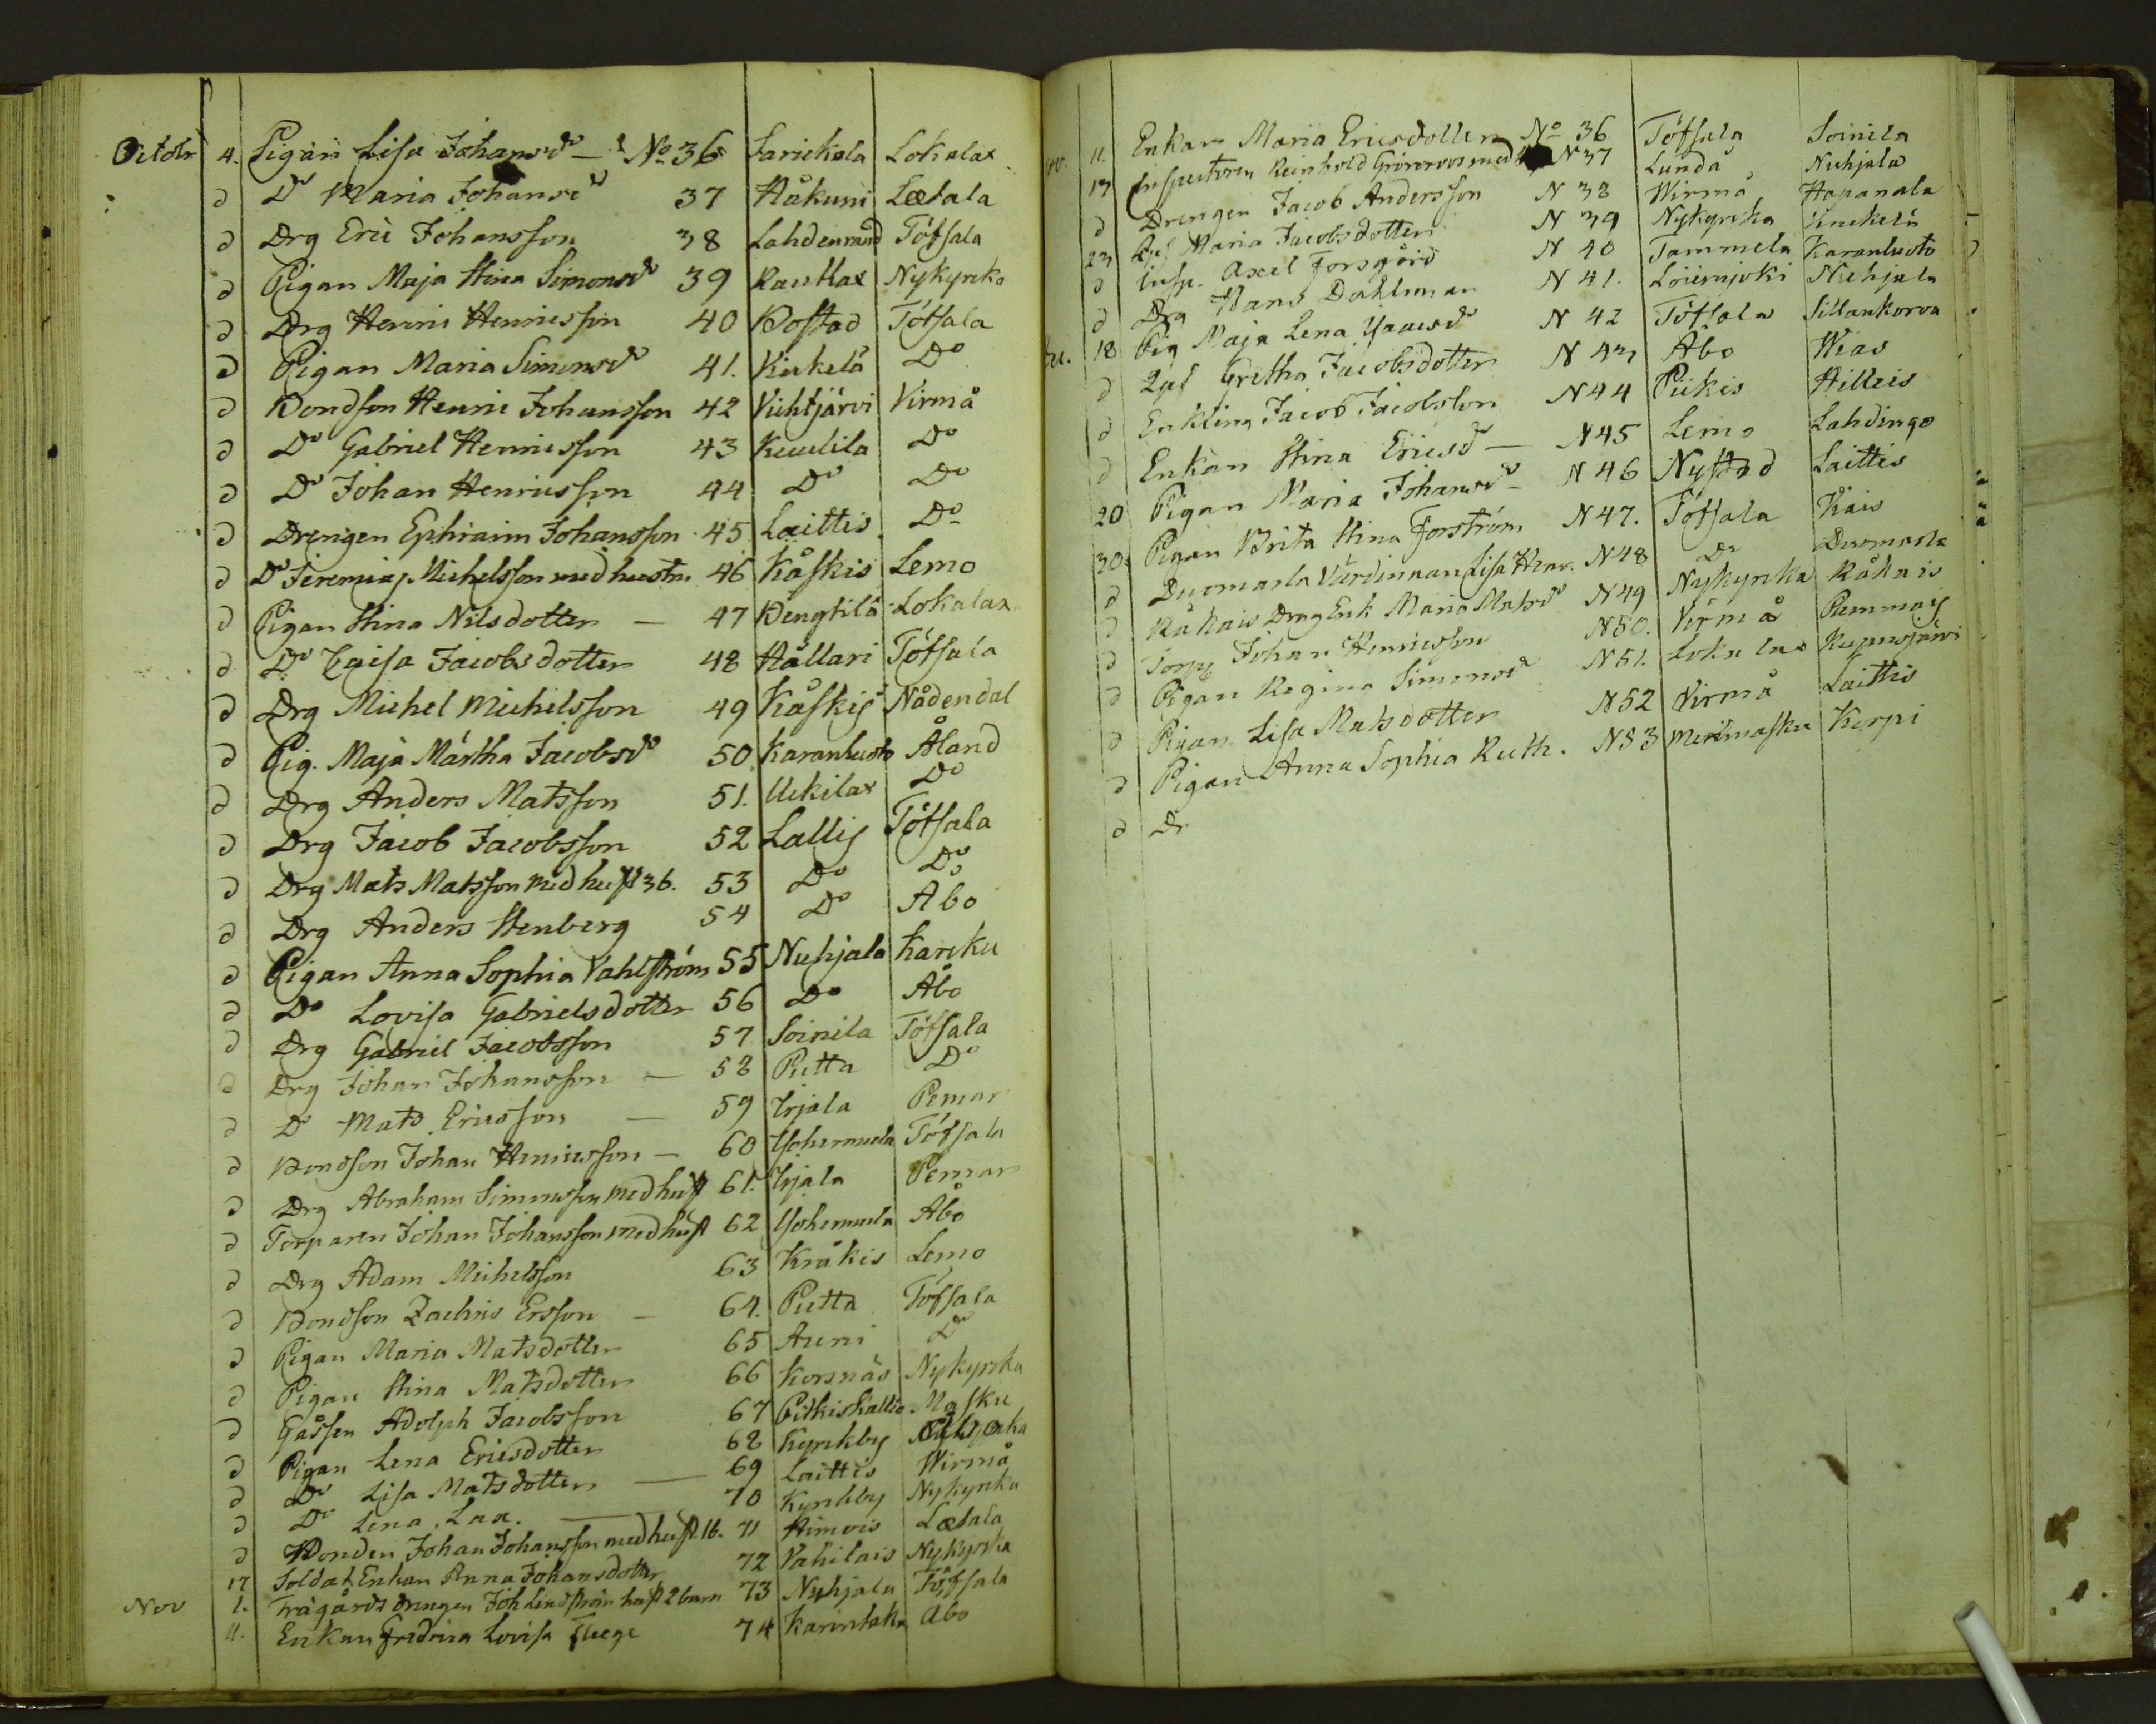 Octobr 4. Pigan Lisa Johansdr — No 36 Sarickola Lokalax
d Do Maria Johansdr 37 Håkuni Lætala
d Drg Eric Johansson 38 Lahdenrand Töfsala
d Pigan Maja Stina Simonsdr 39 Rautlax Nykyrko
d Drg Henric Henricsson 40 Bostad Töfsala
d Pigan Maria Simonsdr 41. Kirkelä Do
d Bondson Henric Johansson 42 Vihtjärvi Virmå
d Do Gabriel Henricsson 43 Kuulila Do
d Do Johan Henricsson 44 Do Do
d Drengen Ephraim Johansson 45 Laittis Do
d Do Jeremias Michelsson med hustru 46 Kåskis Lemo
d Pigan Stina Nilsdotter — 47 Bengtilä Lokalax
d Do Caisa Jacobsdotter 48 Hållari Töfsala
d Drg Michel Michelsson 49 Kåskis Nådendal
d Pig. Maja Märtha Jacobsdr 50 Karanluoto Åland
d Drg Anders Matsson 51. Uckilax Do
d Drg Jacob Jacobsson 52 Lallis Töfsala
d Drg Mats Matsson med hust 3 b. 53 Do Do
d Drg Anders Stenberg 54 Do Abo
d Pigan Anna Sophia Vahlström 55 Nuhjala Karcku
d Do Lovisa Gabrielsdotter 56 Do Åbo
d Drg Gabriel Jacobsson 57 Soinila Töfsala
d Drg Johan Johansson — 58 Putta Do
d D Mats Ericsson — 59 Irjala Pemar
d Bondson Johan Henricsson — 60 Yohenmela Töfsala
d Drg Abraham Simonsson med hust 61. Irjala Pemar
d Torparen Johan Johansson med hust 62 Yohenmela Åbo
d Drg Adam Michelsson 63 Kråkis Lemo
d Bondson Zachris Ersson — 64. Putta Töfsala
d Pigan Maria Matsdotter 65 Auni Do
d Pigan Stina Matsdotter 66 Korsnäs Nykyrka
d Gåssen Adolph Jacobsson 67 Pitkiskallio Masku
d Pigan Lena Ericsdotter 68 Kyrckby Nykyrka
d Do Lisa Matsdotter — 69 Laittis Wirmå
d Do Lena Lax. 70 Kyrckby Nykyrka
d Bonden Johan Johansson med hust. 1 b. 71 Himois Lætala
17 Soldat Enkan Anna Johansdotter 72 Vahilais Nykyrka
Nov 1. Trägårds drengen Joh Lindström hust 2 barn 73 Nuhjala Töfsala
11. Enkan Fredrica Lovisa Fleege 74 Karinlaka Abo
11. Enkan Maria Ericsdotter No 36 Töfsala Soinila
13 Inspectoren Reinhold Grönroos med N 37 Lunda Nuhjala
d Drengen Jacob Andersson N 38 Wirmå Hapanala
23 Maria Jacobsdotter N 39 Nykyrcka Kirckelä
d Insp. Axel Forsgård N 40 Tammela Karanluoto
d Drg Hans Dahlman N 41. Loimjoki Nuhjala
18 Pig Maja Lena Isaacsdr N 42 Töfsala Sillankorva
d Gretha Jacobsdotter N 43 Åbo Wias
d Enkling Jacob Jacobsson N 44 Pikis Hilleis
d Enkan Stina Ericsd — N 45 Lemo Lahdingo
20 Pigan Maria Johansdr — N 46 Nystad Laittis
30. Pigan Brita Stina Forström N 47. Töfsala Kais
d Duomarla Värdinnan Lisa Henr. N 48 Do Duomarla
d Råkais Dreng Enk Maria Matsdr N 49 Nykyrka Råkais
d Torp Johan Henricsson N 50. Virmå Pummais
d Pigan Regina Simonsdr N 51. Lokalax
d Pigan Lisa Matsdotter N 52 Virmå Laittis
d Pigan Anna Sophia Ruth. N 53 Merimasku Korpi
d Dr